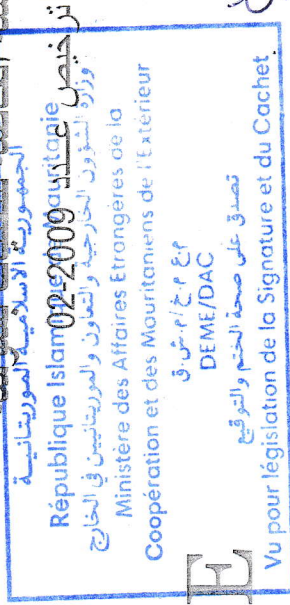 الجمهورية الاسلامية الموريتانية
République Islamique de Mauritanie
ترخيص عدد 02-2009
وزارة الشؤون الخارجية والتعاون والموريتانيين في الخارج
Ministère des Affaires Etrangères de la
Coopération et des Mauritaniens de l'Exterieur
DEME/DAC
تصدق على صحة الختم والتوقيع
Vu pour législation de la Signature et du Cachet
E